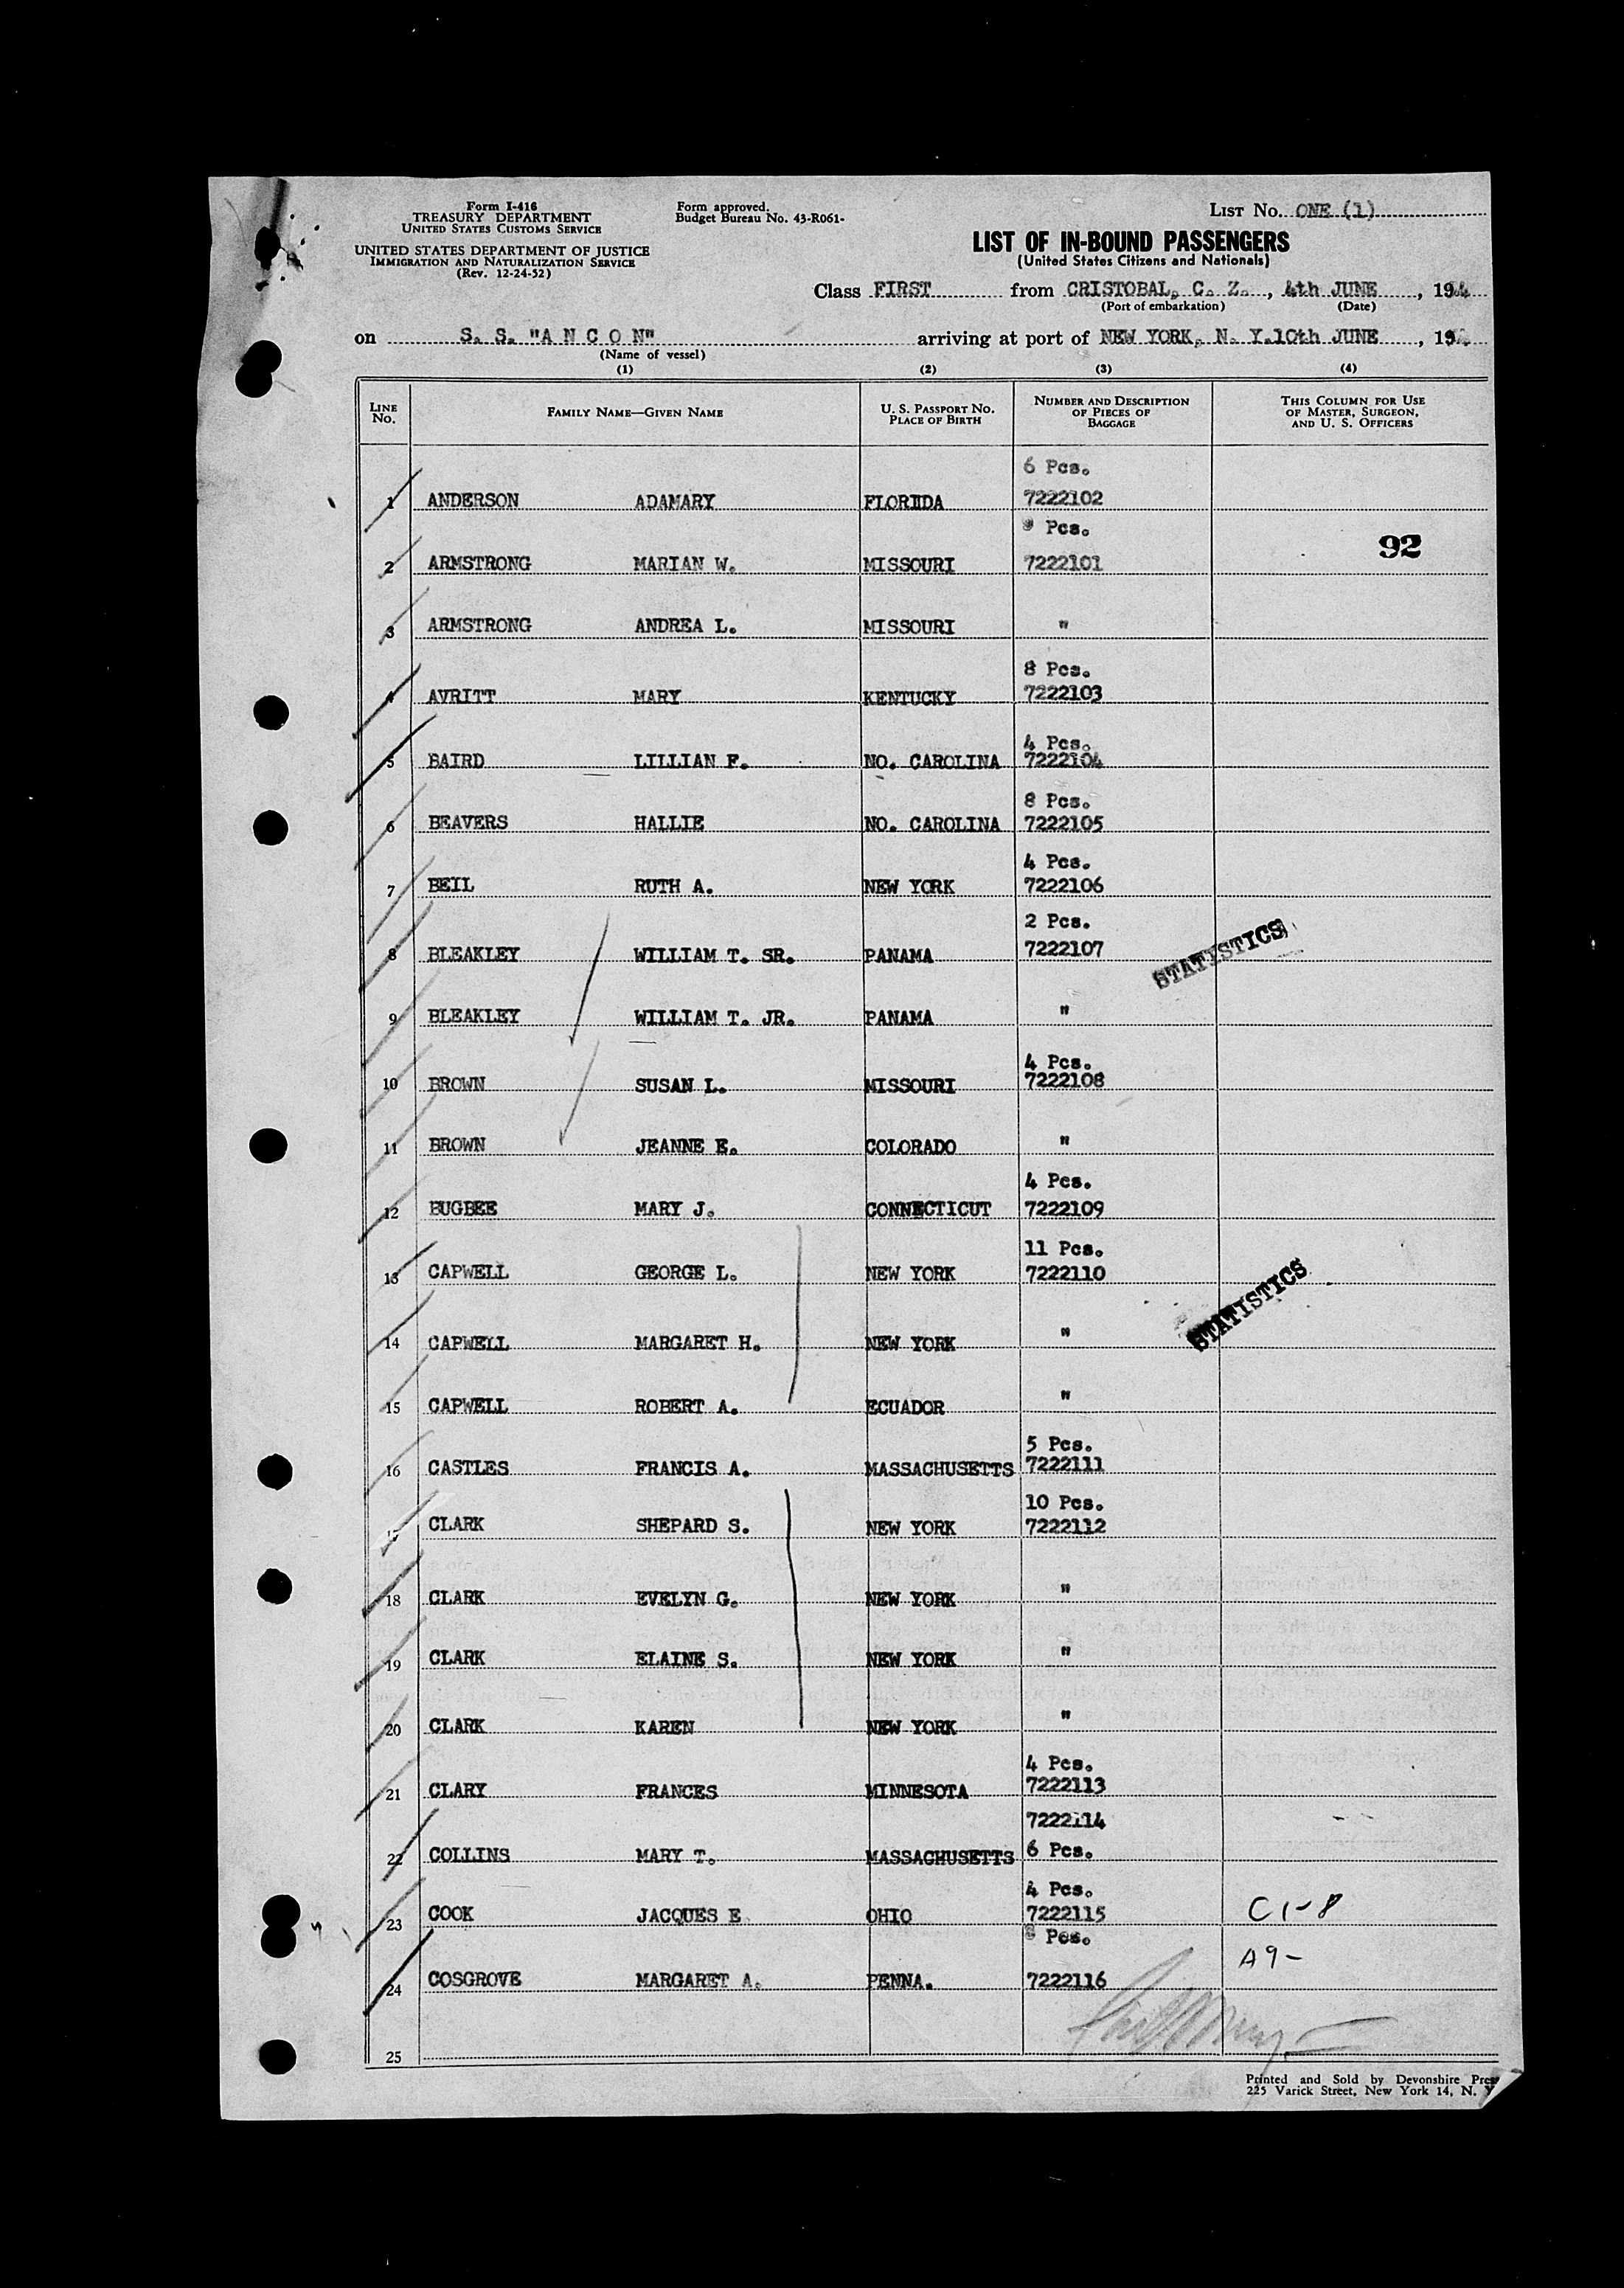 Form I-416
TREASURY DEPARTMENT
UNITED STATES CUSTOMS SERVICE
UNITED STATES DEPARTMENT OF JUSTICE
IMMIGRATION AND NATURALIZATION SERVICE
(Rev. 12-24-52)
Form approved.
Budget Bureau No. 43-R061-
LIST No. ONE (1)
LIST OF IN-BOUND PASSENGERS
(United States Citizens and Nationals)
Class FIRST from CRISTOBAL, C. Z., 4th JUNE, 19
(Port of embarkation) (Date)
on S. S. "A N C O N" arriving at port of NEW YORK, N. Y. 10th JUNE, 19
(Name of vessel)
(1) (2) (3) (4)
LINE No. FAMILY NAME—GIVEN NAME U. S. PASSPORT No. PLACE OF BIRTH NUMBER AND DESCRIPTION OF PIECES OF BAGGAGE THIS COLUMN FOR USE OF MASTER, SURGEON, AND U. S. OFFICERS
6 Pcs.
1 ANDERSON ADAMARY FLORIDA 7222102
Pcs.
92
2 ARMSTRONG MARIAN W. MISSOURI 7222101
3 ARMSTRONG ANDREA L. MISSOURI "
8 Pcs.
4 AVRITT MARY KENTUCKY 7222103
4 Pcs.
5 BAIRD LILLIAN F. NO. CAROLINA 7222104
8 Pcs.
6 BEAVERS HALLIE NO. CAROLINA 7222105
4 Pcs.
7 BEIL RUTH A. NEW YORK 7222106
2 Pcs.
8 BLEAKLEY WILLIAM T. SR. PANAMA 7222107
STATISTICS
9 BLEAKLEY WILLIAM T. JR. PANAMA "
4 Pcs.
10 BROWN SUSAN L. MISSOURI 7222108
11 BROWN JEANNE E. COLORADO "
4 Pcs.
12 BUGBEE MARY J. CONNECTICUT 7222109
11 Pcs.
13 CAPWELL GEORGE L. NEW YORK 7222110
STATISTICS
14 CAPWELL MARGARET H. NEW YORK "
15 CAPWELL ROBERT A. ECUADOR "
5 Pcs.
16 CASTLES FRANCIS A. MASSACHUSETTS 7222111
10 Pcs.
17 CLARK SHEPARD S. NEW YORK 7222112
18 CLARK EVELYN G. NEW YORK "
19 CLARK ELAINE S. NEW YORK "
20 CLARK KAREN NEW YORK "
4 Pcs.
21 CLARY FRANCES MINNESOTA 7222113
7222114
22 COLLINS MARY T. MASSACHUSETTS 6 Pcs.
4 Pcs.
23 COOK JACQUES E OHIO 7222115 C1-8
Pcs.
A9-
24 COSGROVE MARGARET A. PENNA. 7222116
25
Printed and Sold by Devonshire
225 Varick Street, New York 14, N. Y